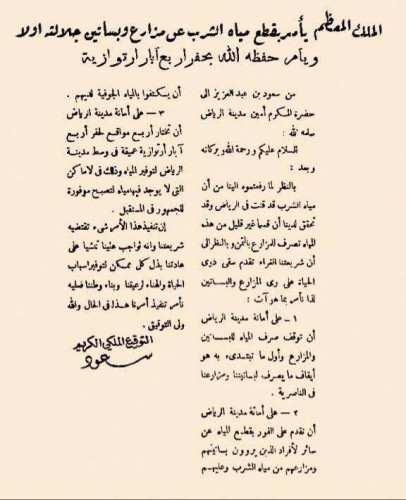 الملك المعظم يأمر بقطع مياه الشرب عن مزارع وبساتين جلالته اولا
ويأمر حفظه الله بحفر اربع آبار ارتوازية
من سعود بن عبد العزيز الى
حضرة المكرم أمين مدينة الرياض
سلمه الله :
السلام عليكم ورحمة الله وبركاته
وبعد :
بالنظر لما رفعتموه الينا من أن
مياه الشرب قد قلت في الرياض وقد
تحقق لدينا أن قسما غير قليل من هذه
المياه تصرف للمزارع بالثمن وبالنظر الى
أن شريعتنا الغراء تقدم سقى ذوى
الحياة على رى المزارع والبساتين
لذا نأمر بما هو آت :
١ – على أمانة مدينة الرياض
أن توقف صرف المياه للبساتين
والمزارع وأول ما تبتدىء به هو
أيقاف ما يصرف لبساتيننا ومزارعنا
في الناصرية .
٢ – على أمانة مدينة الرياض
أن تقدم على الفور بقطع المياه عن
سائر الأفراد الذين يروون بساتينهم
ومزارعهم من مياه الشرب وعليهم
أن يسكتفوا بالمياه الجوفية لديهم .
٣ – على أمانة مدينة الرياض
أن تختار أربع مواقع لحفر أربع
آبار أرتوازية عميقة في وسط مدينة
الرياض لتوفير المياه وذلك في الاماكن
التى لا يوجد فيها مياه لتصبح موفورة
للجمهور في المستقبل .
إن تنفيذ هذا الأمر شىء تقتضيه
شريعتنا وانه لواجب علينا تمشيا على
عادتنا بذل كل ممكن لتوفير أسباب
الحياة والهناء لرعيتنا وبناء وطننا فعليه
نأمر تنفيذ أمرنا هذا في الحال والله
ولى التوفيق .
التوقيع الملكي الكريم
سعود